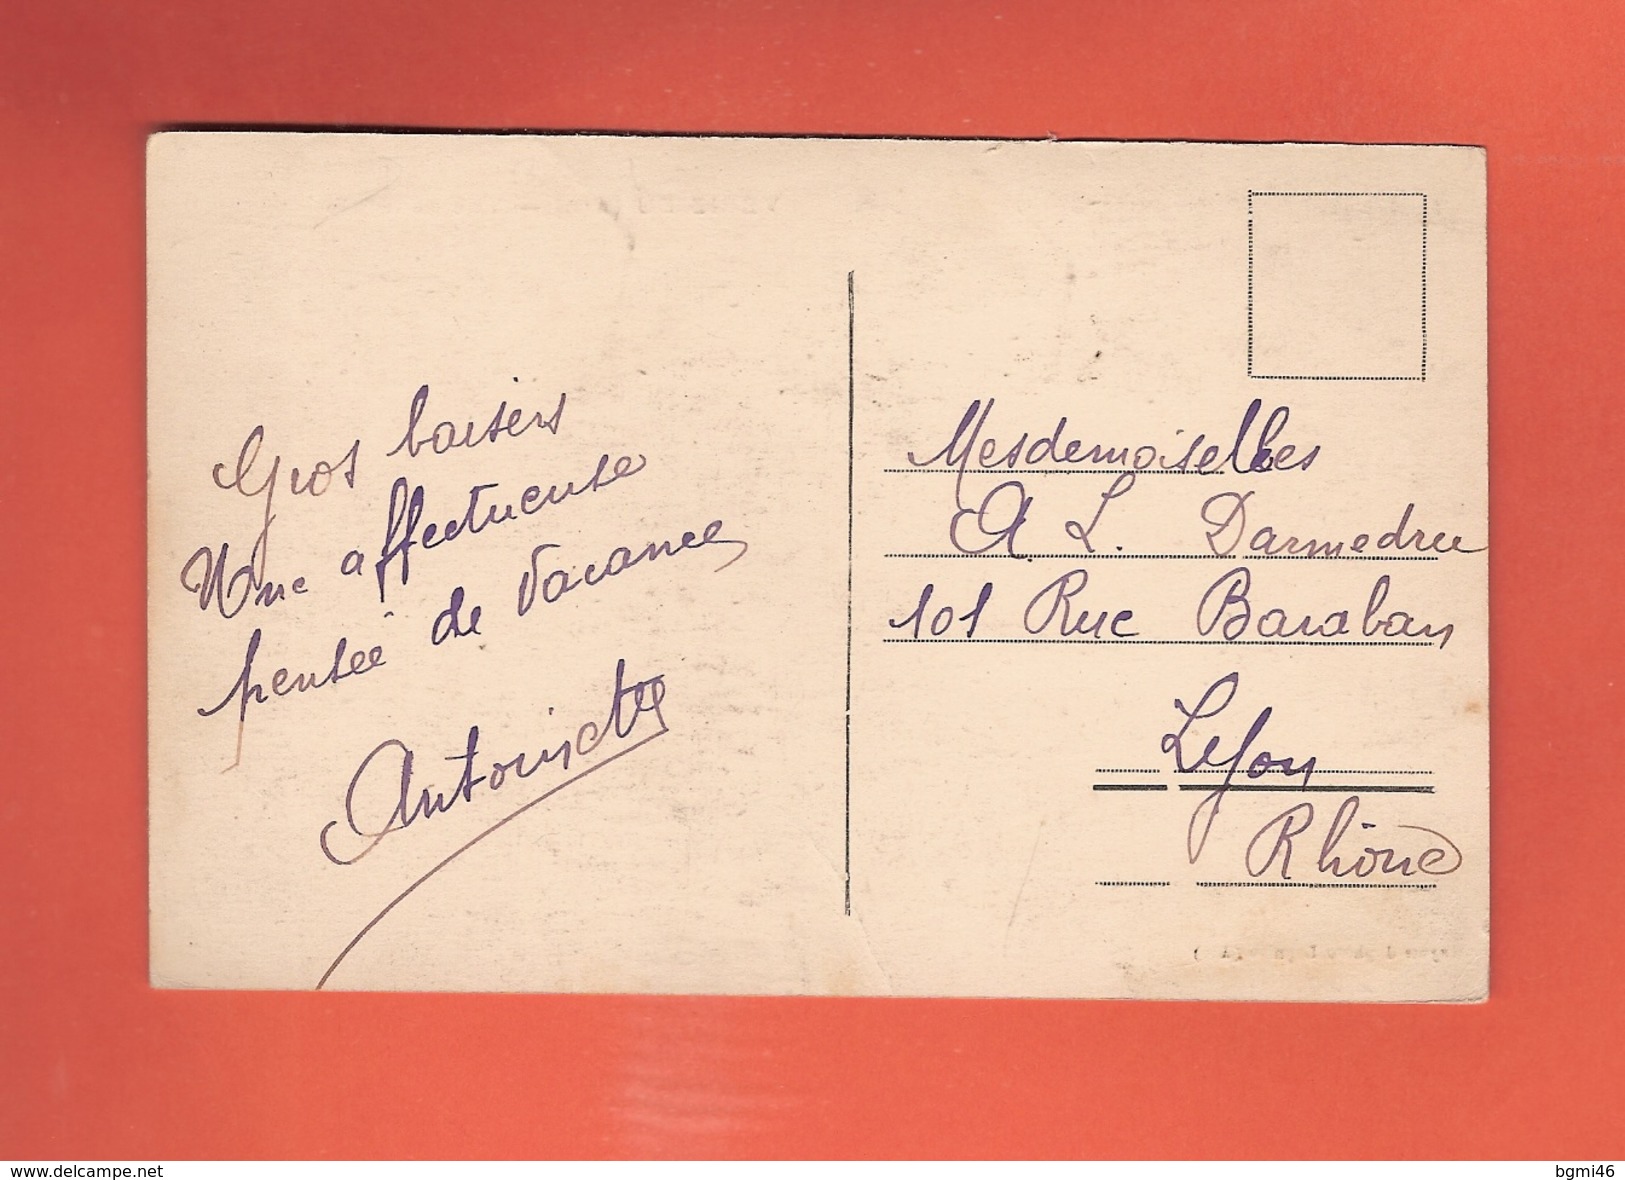 Gros baisers
Une affectueuse
pensée de vacances
Antoinette
Mesdemoiselles
A. L. Darmedru
101 Rue Baraban
Lyon
Rhône
www.delcampe.net
bgmi46